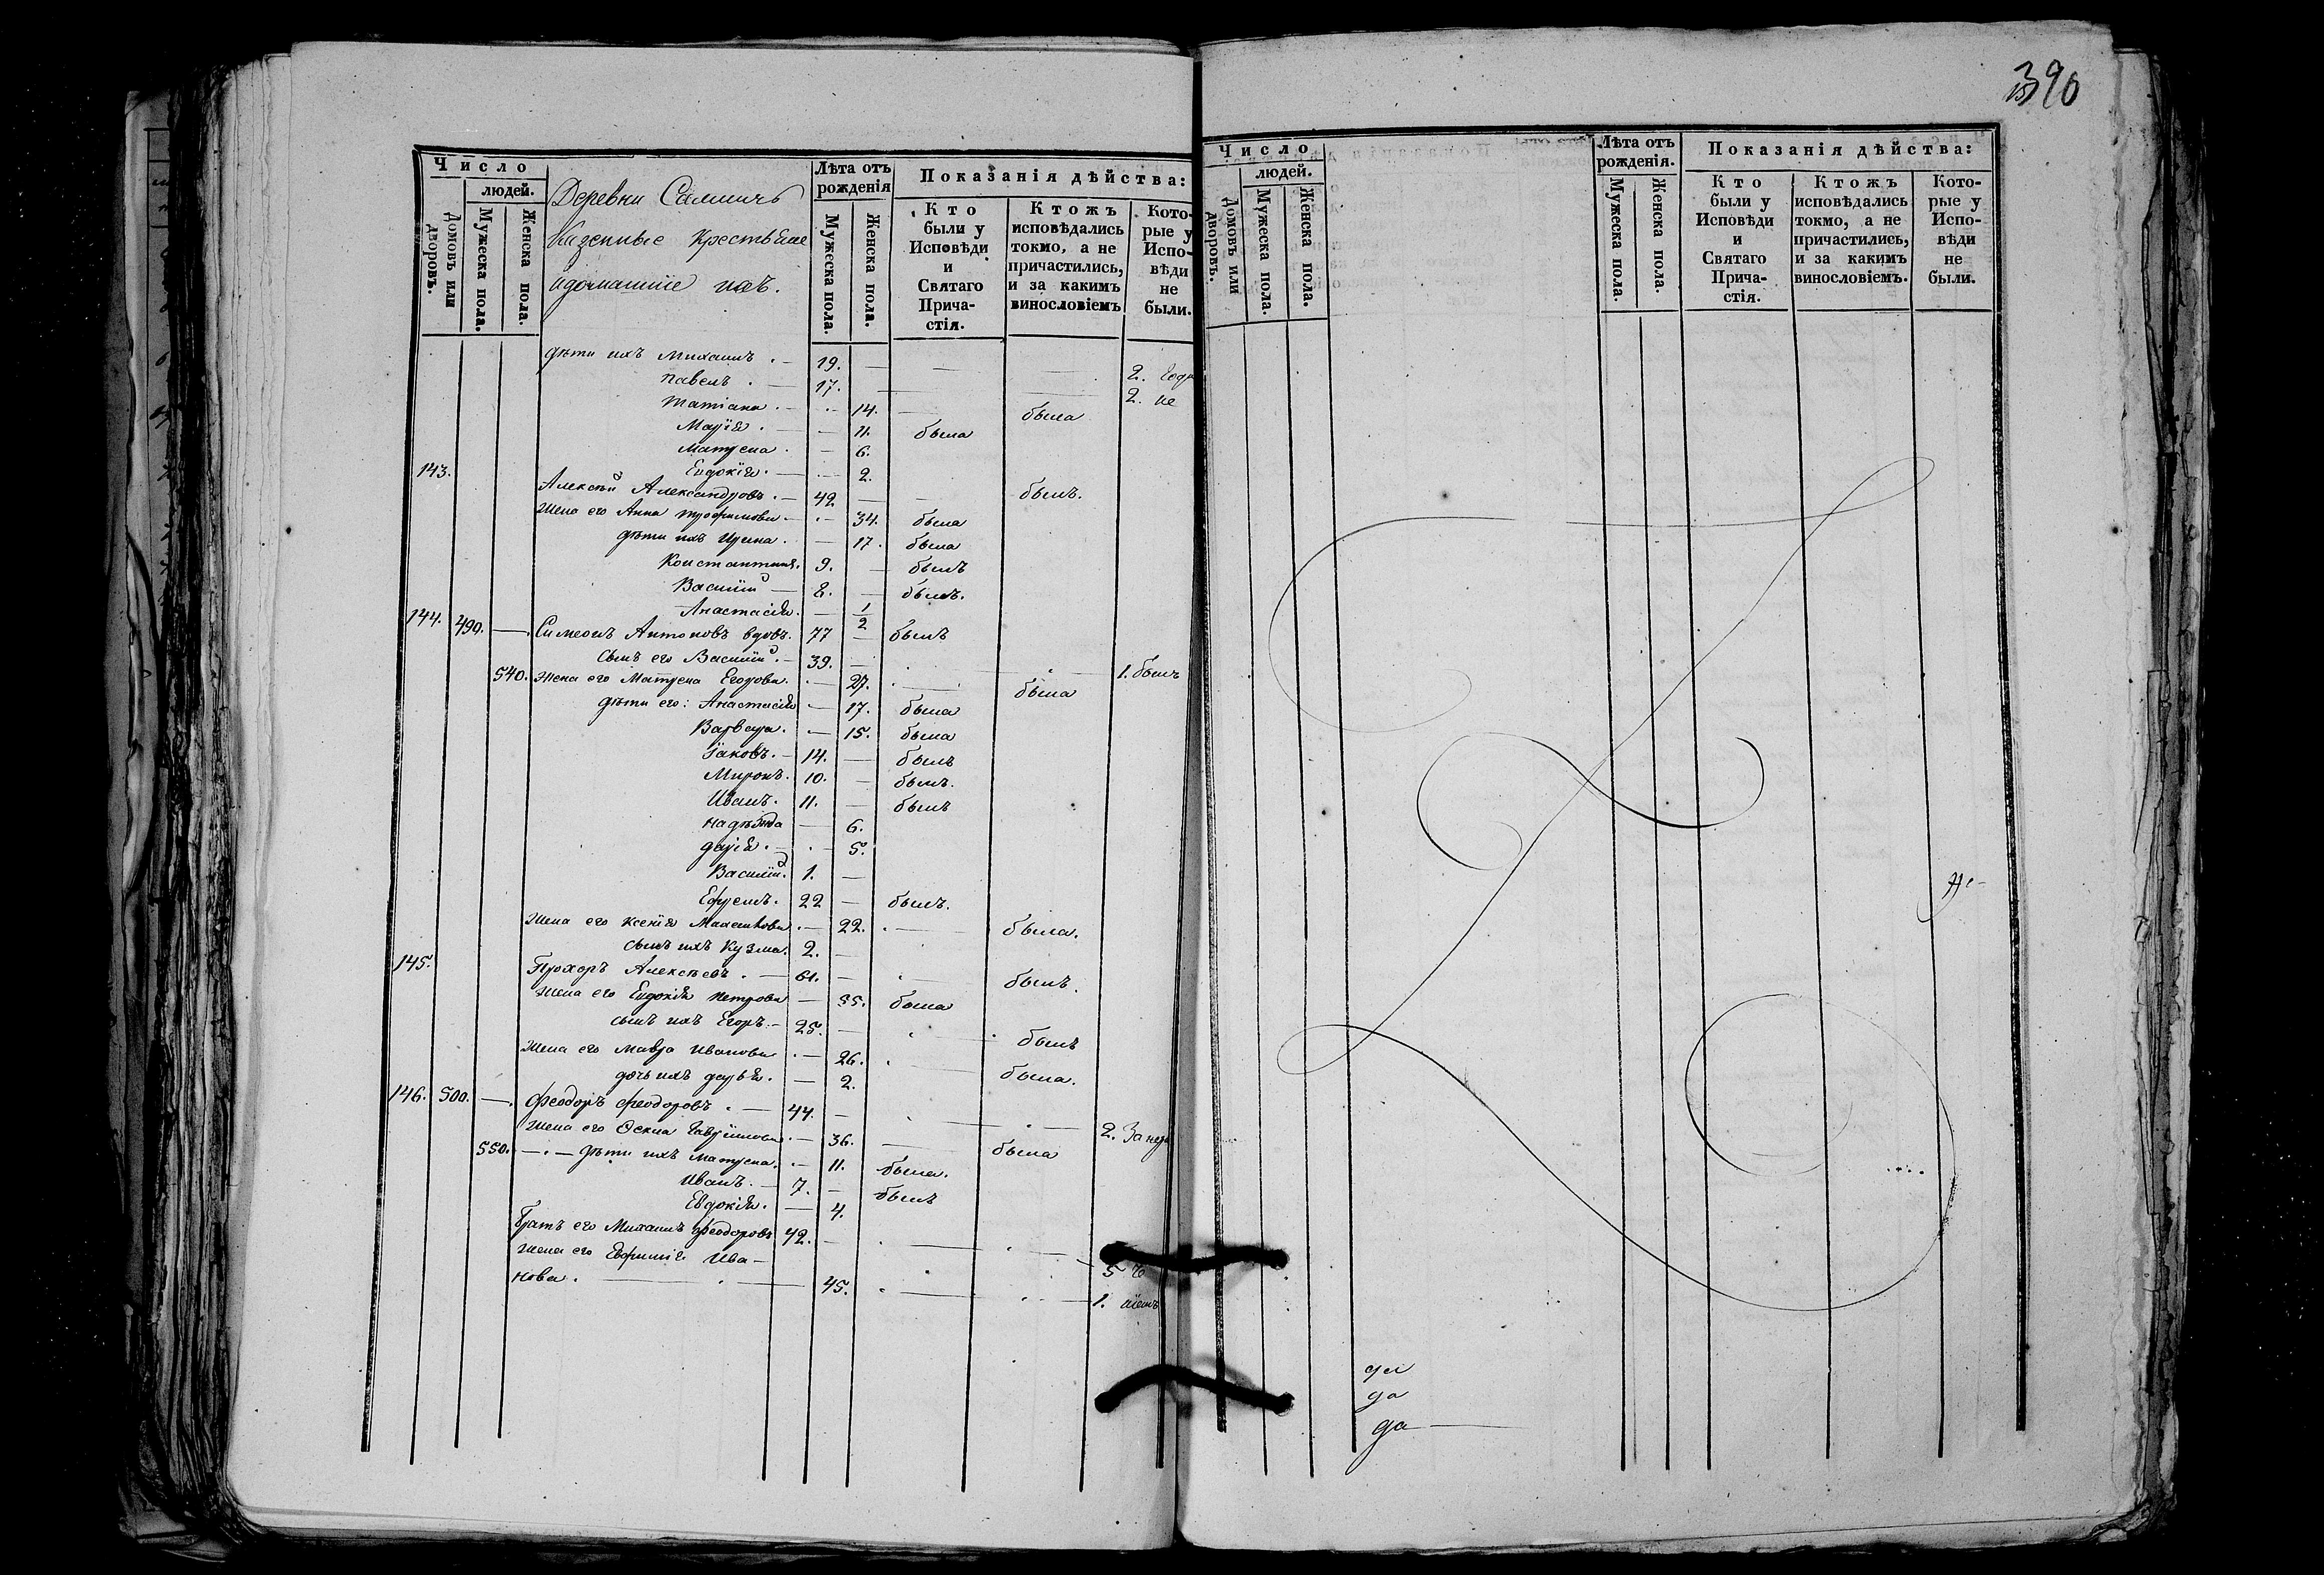 390
Число
людей.
Домовъ или дворовъ.
Мужеска пола.
Женска пола.
Деревни
Казенные Крестьяне
и домашніе ихъ.
Лѣта отъ рожденія
Мужеска пола.
Женска пола.
Показанія дѣйства:
Кто были у Исповѣди и Святаго Причастія.
Ктожъ исповѣдались токмо, а не причастились, и за какимъ винословіемъ
Которые у Исповѣди не были.
дѣти ихъ Михаилъ . — 19. — — — 2.
Павелъ . — 17. — — 2. не
Татіана . — 14. — была
Марія . — 11. была
Матрена . — 6.
Евдокія . — 2.
143. Алексѣй Александровъ . — 42 — — былъ.
Жена его Анна Трофимова — 34. была
дѣти ихъ Ирина . — 17. была
Константинъ. 9. — былъ
Василій — 2. — былъ.
Анастасія. — 1/2
144. 490. — Симеонъ Антоновъ вдовъ. 77 — былъ
Сынъ его Василій . — 39. — — 1. былъ
540. Жена его Матрена Егорова . — 27. — была
дѣти его: Анастасія — 17. была
Варвара . — 15. была
Іаковъ . — 14. — былъ
Миронъ . 10. — былъ.
Иванъ . 11. — былъ
Надѣжда — 6.
Дарія . — 5.
Василій. 1. —
Ефремъ. 22 — былъ.
Жена его Ксенія . — 22. — была.
сынъ ихъ Кузма. 2. —
145. Прохоръ Алексѣевъ . — 61. — былъ.
Жена его Евдокія Петрова — 55. была
сынъ ихъ Егоръ. — 25. — былъ
Жена его Мавра Иванова . — 26. — была.
дочь ихъ Дарья. — 2.
146. 500. — Феодоръ Феодоровъ . — 44. — — 2.
Жена его Фекла . — 36. — была
550. — дѣти ихъ Матрена. — 11. была.
Иванъ. — 7. — былъ
Евдокія. — 4.
Братъ его Михаилъ Феодоровъ 42. — — 5
Жена его Евфимія Ива-
нова . — 45. — 1.
Число
людей.
Домовъ или дворовъ.
Мужеска пола.
Женска пола.
Лѣта отъ рожденія.
Мужеска пола.
Женска пола.
Показанія дѣйства:
Кто были у Исповѣди и Святаго Причастія.
Ктожъ исповѣдались токмо, а не причастились, и за какимъ винословіемъ.
Которые у Исповѣди не были.
да
да
да